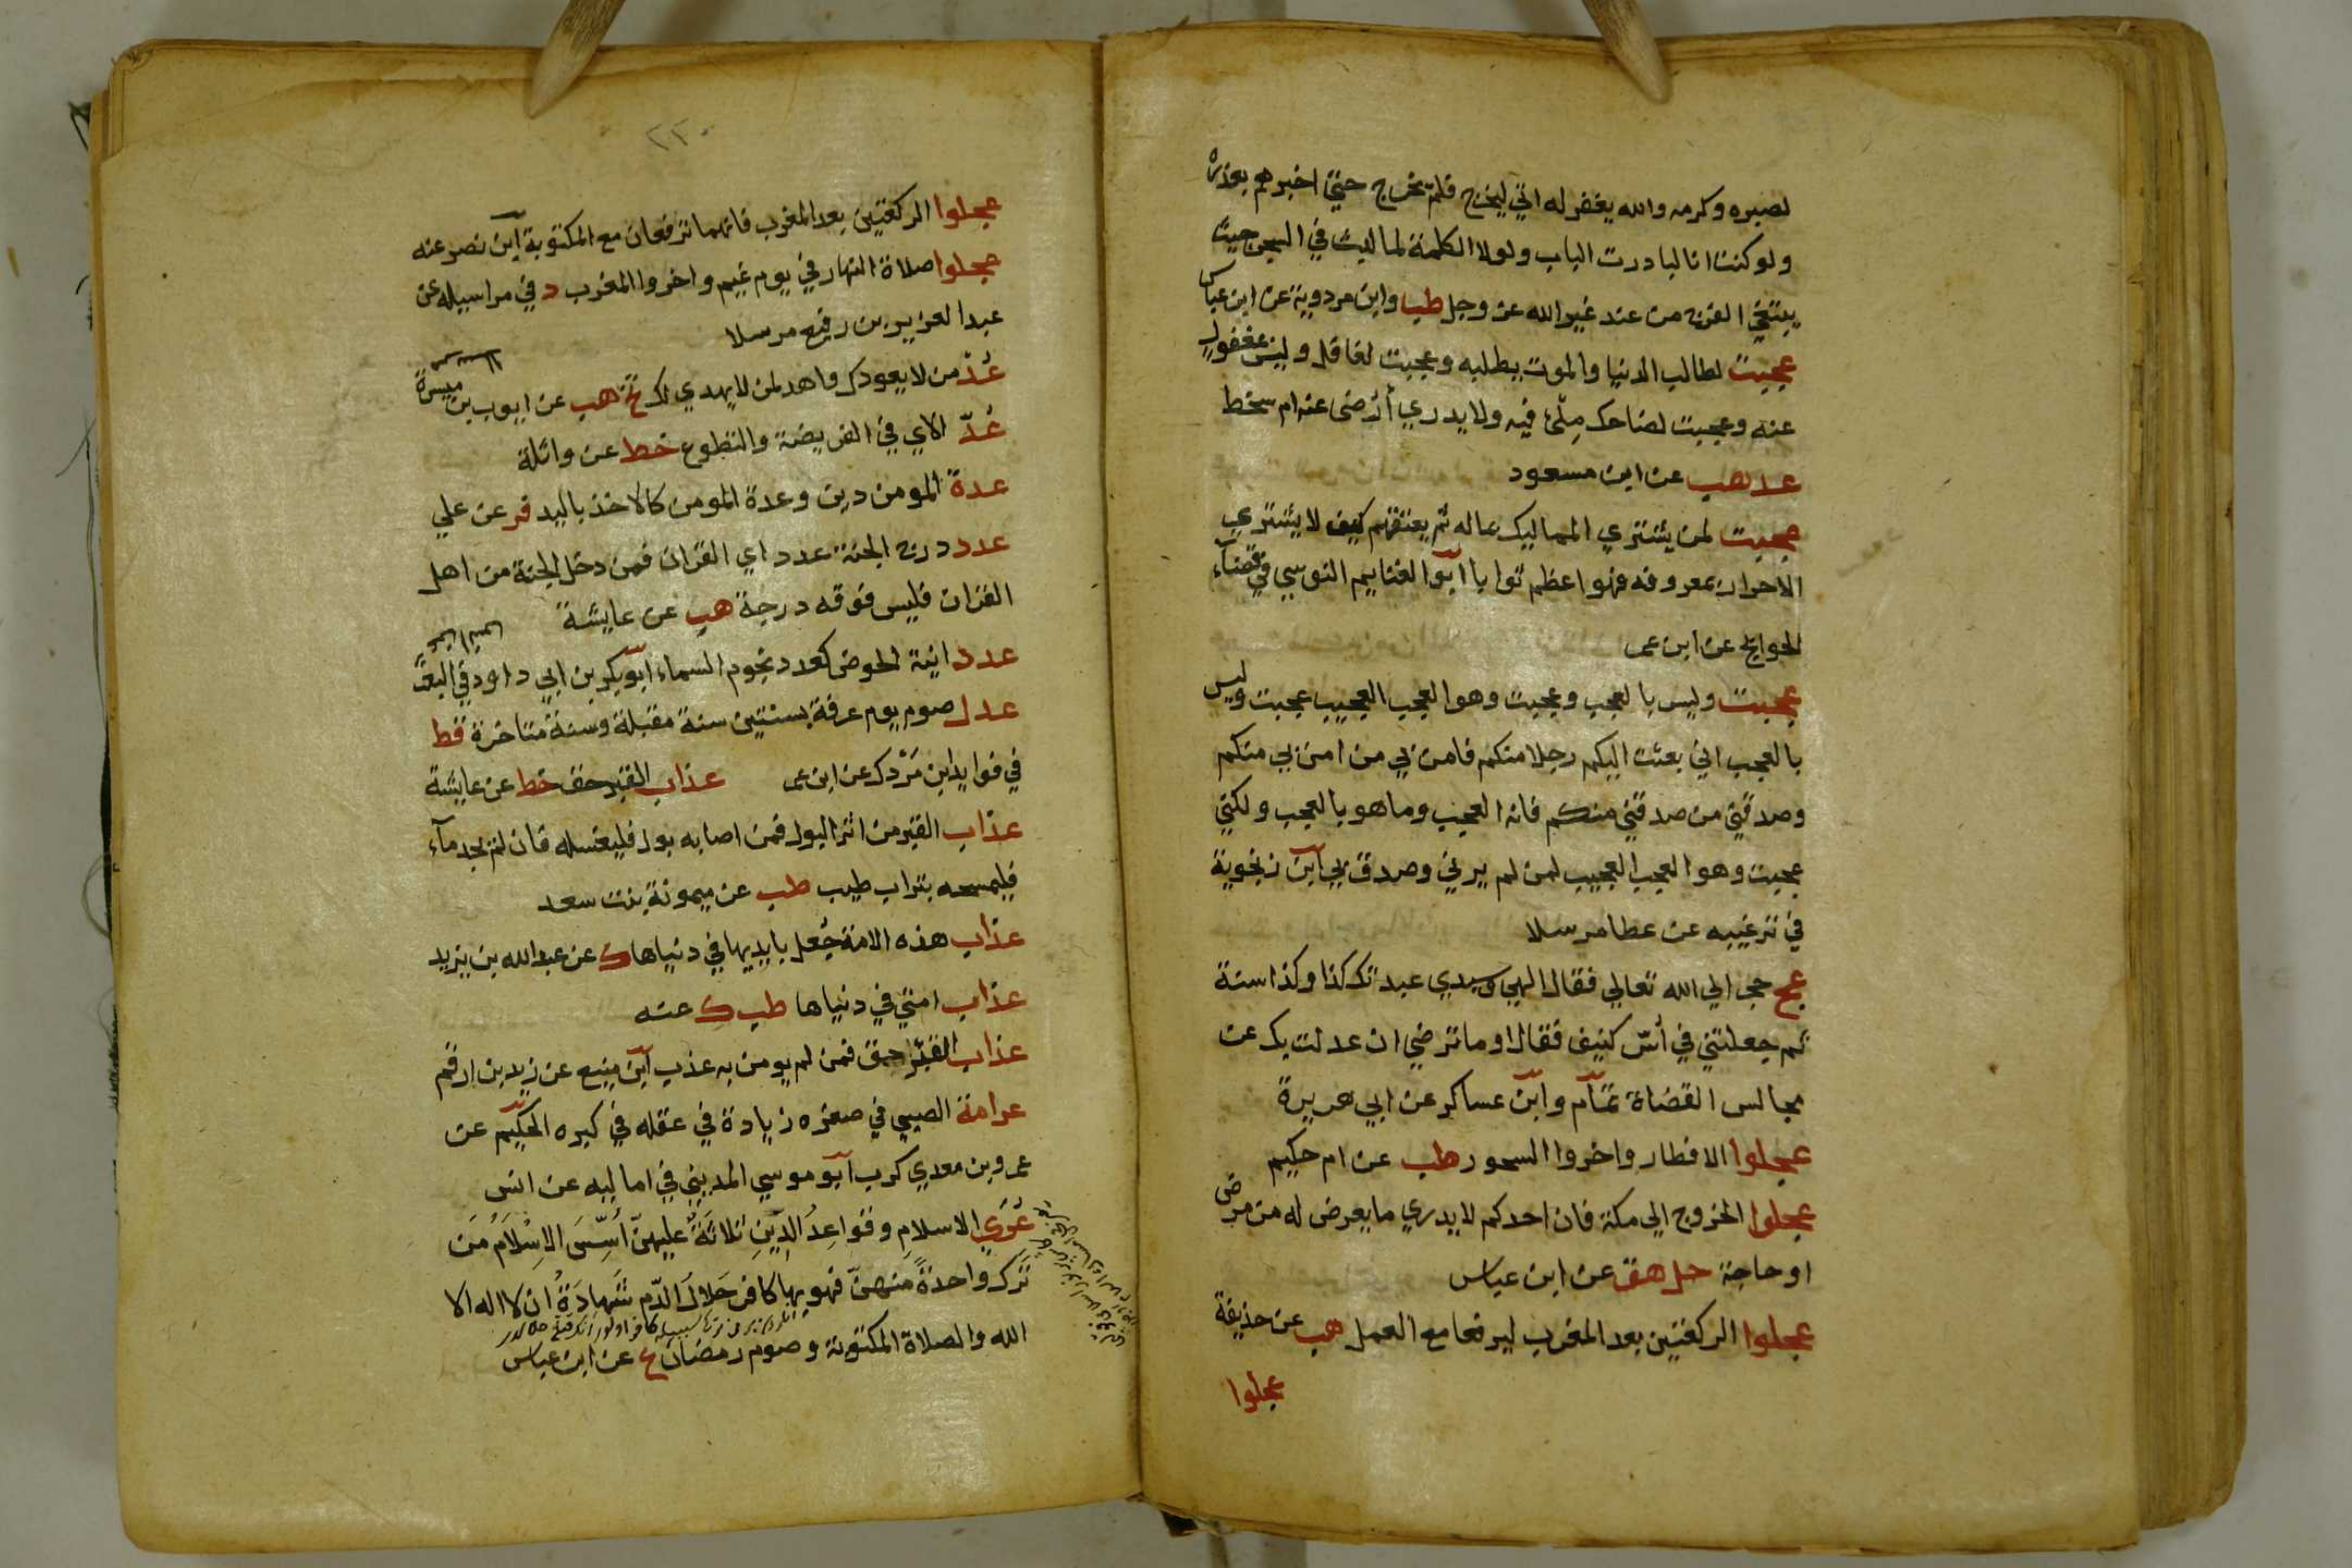 لصبره وكرمه والله يغفر له اتي ليخرج فلم يخرج حتي اخبرهم بعذره
ولو كنت انا لبادرت الباب ولولا الكلمة لما لبث في السجن حيث
يبتغي الفرج من عند غير الله عز وجل طب وابن مردوية عن ابن عباس
عجبت لطالب الدنيا والموت يطلبه وعجبت لغافل وليس بمغفول
عنه وعجبت لضاحك ملئ فيه ولا يدري أرضى عنه ام سخط
عد هب عن ابن مسعود
عجبت لمن يشتري المماليك بماله ثم يعتقهم كيف لا يشتري
الاحرار بمعروفه فهو اعظم ثوابا ابو الغنايم النوسي في قضآء
الحوايج عن ابن عمر
عجبت وليس بالعجب وعجبت وهو العجب العجيب عجبت وليس
بالعجب اني بعثت اليكم رجلا منكم فامن بي من امن بي منكم
وصدقني من صدقني منكم فانه العجب وما هو بالعجب ولكني
عجبت وهو العجب العجيب لمن لم يرني وصدق بي ابن زنجوية
في ترغيبه عن عطا مرسلا
عج حجر الي الله تعالي فقال الهي وسيدي عبدتك كذا وكذا سنة
ثم جعلتني في أسّ كنيف فقال او ما ترضي ان عدلت بك عن
مجالس القضاة تمام وابن عساكر عن ابي هريرة
عجلوا الافطار واخروا السحور طب عن ام حكيم
عجلوا الخروج الي مكة فان احدكم لا يدري ما يعرض له من مرض
او حاجة حل هق عن ابن عباس
عجلوا الركعتين بعد المغرب ليرفعا مع العمل هب عن حذيفة
عجلوا
٢٢٠
عجلوا الركعتين بعد المغرب فانهما ترفعان مع المكتوبة ابن نصر عنه
عجلوا صلاة النهار في يوم غيم واخروا المغرب د في مراسيله عن
عبد العزيز بن رفيع مرسلا
عُدْ من لا يعودك واهد لمن لا يهدي لك تخ هب عن ايوب بن ميسرة
عُدّ الاي في الفريضة والتطوع خط عن واثلة
عدة المومن دين وعدة المومن كالاخذ باليد فر عن علي
عدد درج الجنة عدد اي القران فمن دخل الجنة من اهل
القران فليس فوقه درجة هب عن عايشة
عدد انية الحوض كعدد نجوم السماء ابو بكر بن ابي داود في البعث
عدل صوم يوم عرفة بسنتين سنة مقبلة وسنة متاخرة قط
في فوايد ابن مَرْدك عن ابن عمر عذاب القبر حق خط عن عايشة
عذاب القبر من اثر البول فمن اصابه بول فليغسله فان لم يجد مآء
فليمسحه بتراب طيب طب عن ميمونة بنت سعد
عذاب هذه الامة جُعل بايديها في دنياها ك عن عبد الله بن يزيد
عذاب امتي في دنياها طب ك عنه
عذاب القبر حق فمن لم يومن به عذب ابن منيع عن زيد بن ارقم
عرامة الصبي في صغره زيادة في عقله في كبره الحكيم عن
عمرو بن معدي كرب ابو موسي المديني في اماليه عن انس
عُرَي الاسلامِ وقواعدُ الدِّينِ ثلاثةٌ عليهنّ اُسِّسَ الاِسْلاَمُ مَن
تَرَك واحدةً منهنّ فهو بها كافر حَلالُ الدّم شَهادَةُ ان لا اله الا
الله والصلاة المكتوبة وصوم رمضان ع عن ابن عباس